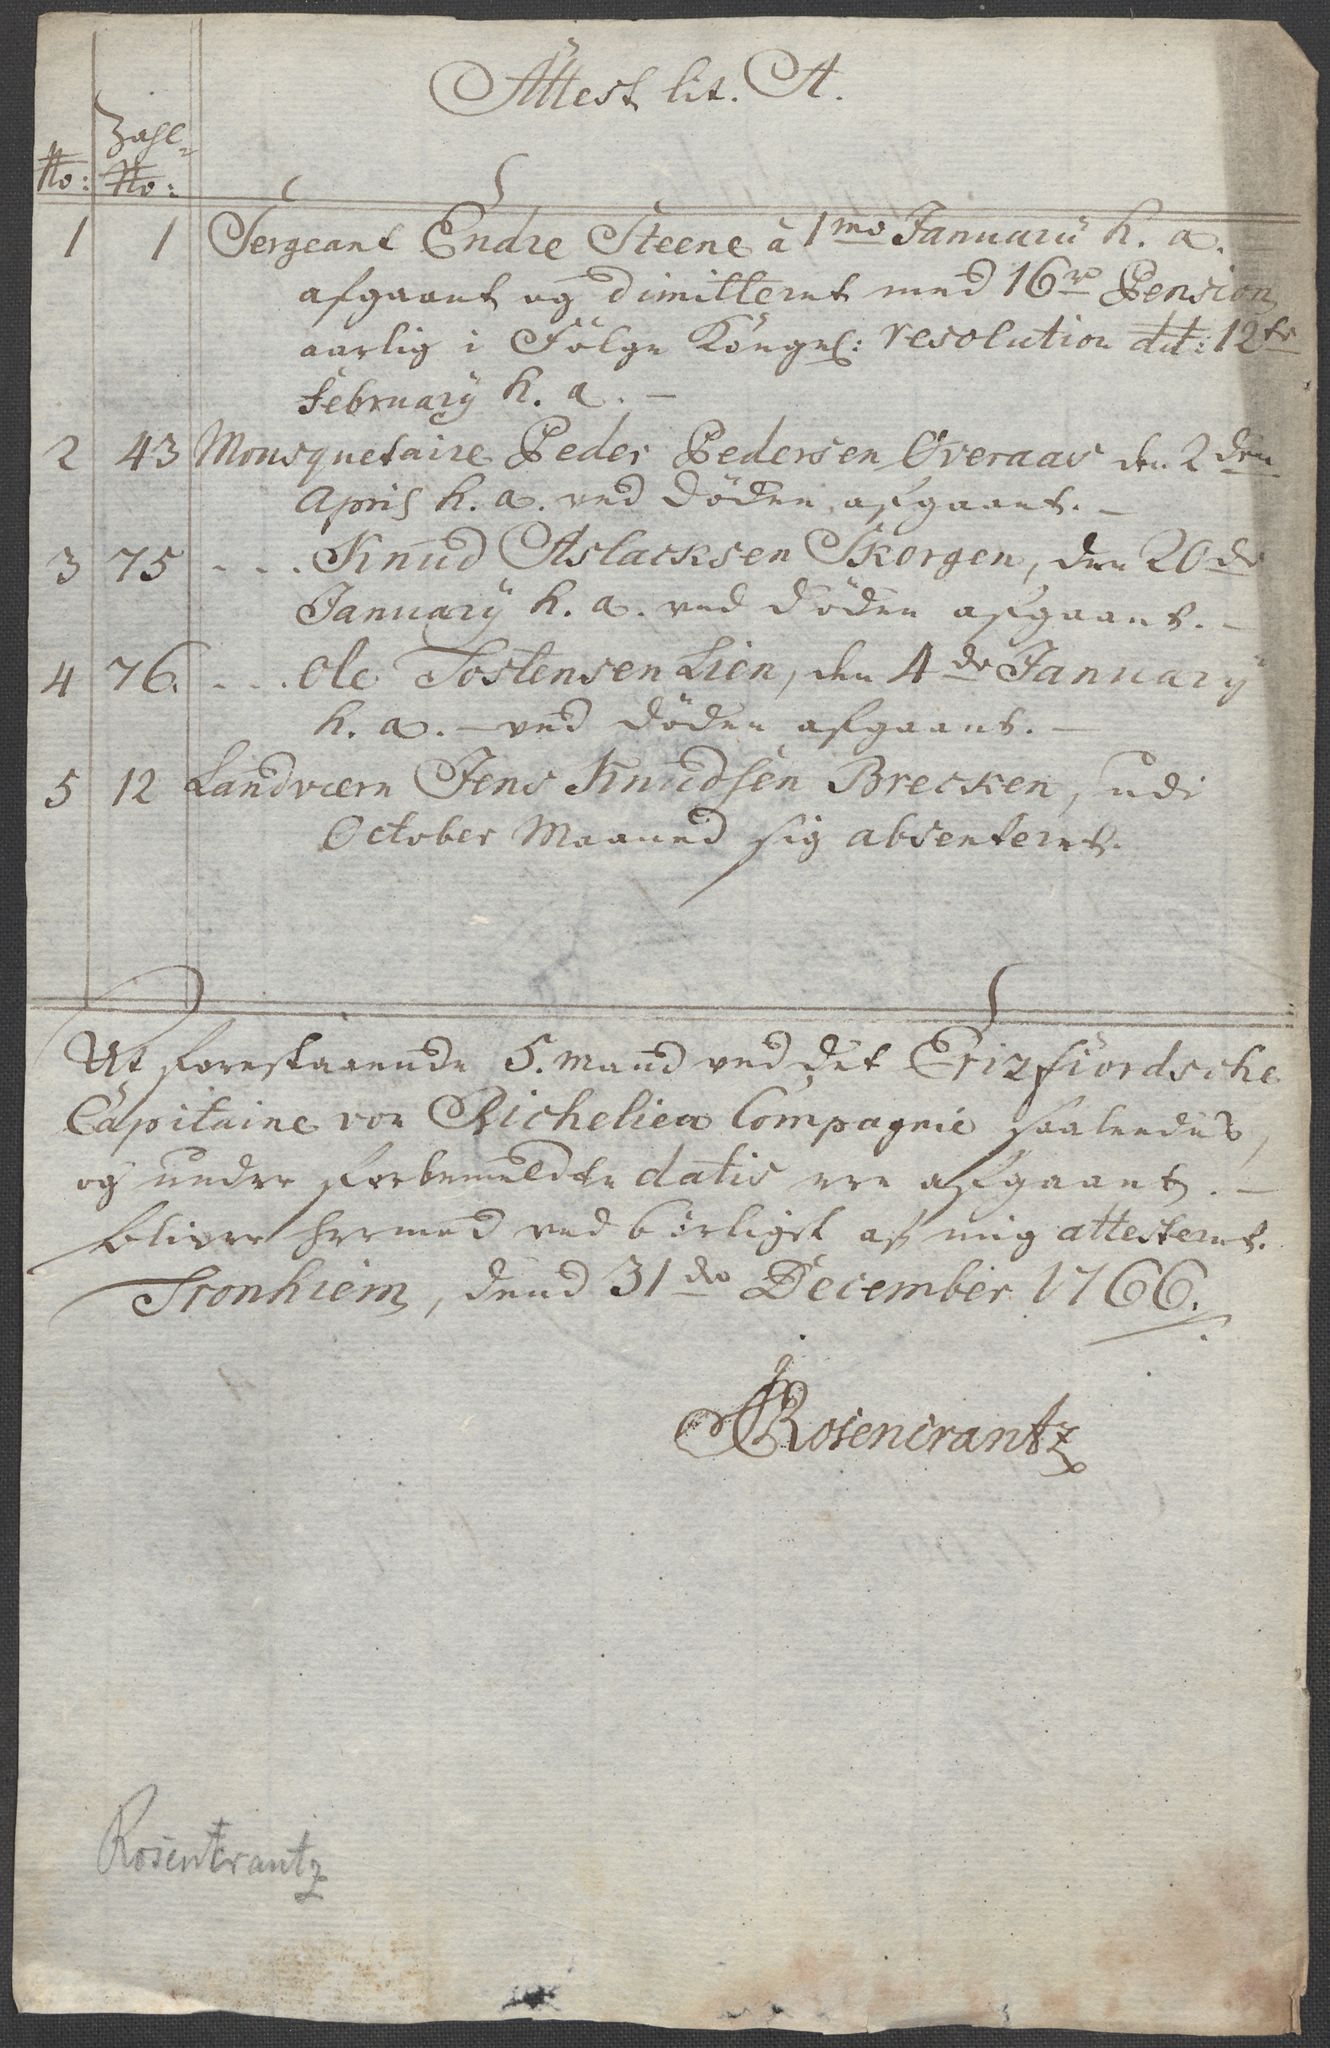 Attest lit. A.
Zahl-
No: No:
1 1 Sergeant Endre Steene à 1mo Januarii h. a.
afgaaet og dimitteret med 16 rd Pension
aarlig i Fölge Kongel: resolution dat: 12te
February h. a. –
2 43 Mousquetaire Peder Pedersen Øveraas den 2den
April h. a. ved døden afgaaet. –
3 75 - - - Knud Aslacksen Skorgen, den 20de
January h. a. ved døden afgaaet. –
4 76. - - - Ole Tostensen Lien, den 4de January
h. a. – ved døden afgaaet. –
5 12 Landværn Jens Knudsen Brecken, udi
October Maaned sig absenteret.
At forestaaende 5. Mand ved det Erizfiordsche
Capitaine von Richelieu Compagnie saaledes,
og under forbemeldte datis ere afgaaet. –
bliver hermed ved børligst af mig attesteret.
Tronhiem, dend 31de December 1766.
Rosencrantz
Rosentrantz